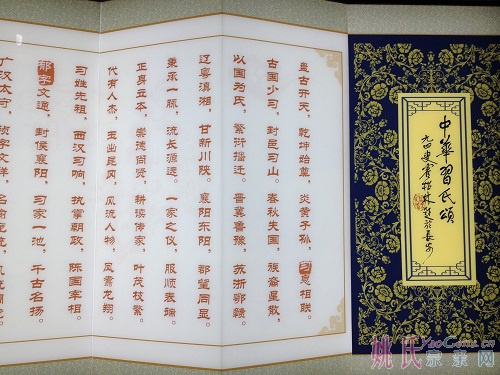 中華習氏頌
盘古开天，乾坤始尊，炎黄子孙，习息相联。
古国少习，封邑习山。春秋失国，族裔星散，
以国为氏，繁衍播迁。晋冀鲁豫，苏浙鄂赣。
辽粤滇湘，甘新川陕。襄阳东阳，郡望同显。
秉承一脉，流长源远。一家之仪，服顺表端。
正身立本，崇德尚贤。耕读传家，叶茂枝繁。
代有人杰，玉出昆冈。风流人物，凤翥龙翔。
习姓先祖，西汉习响，执掌朝政，陈国宰相。
郁字文通，封侯襄阳，习家一池，千古名扬。
广汉太守，祯字文祥，
姚氏宗亲网
YaoGens.cn